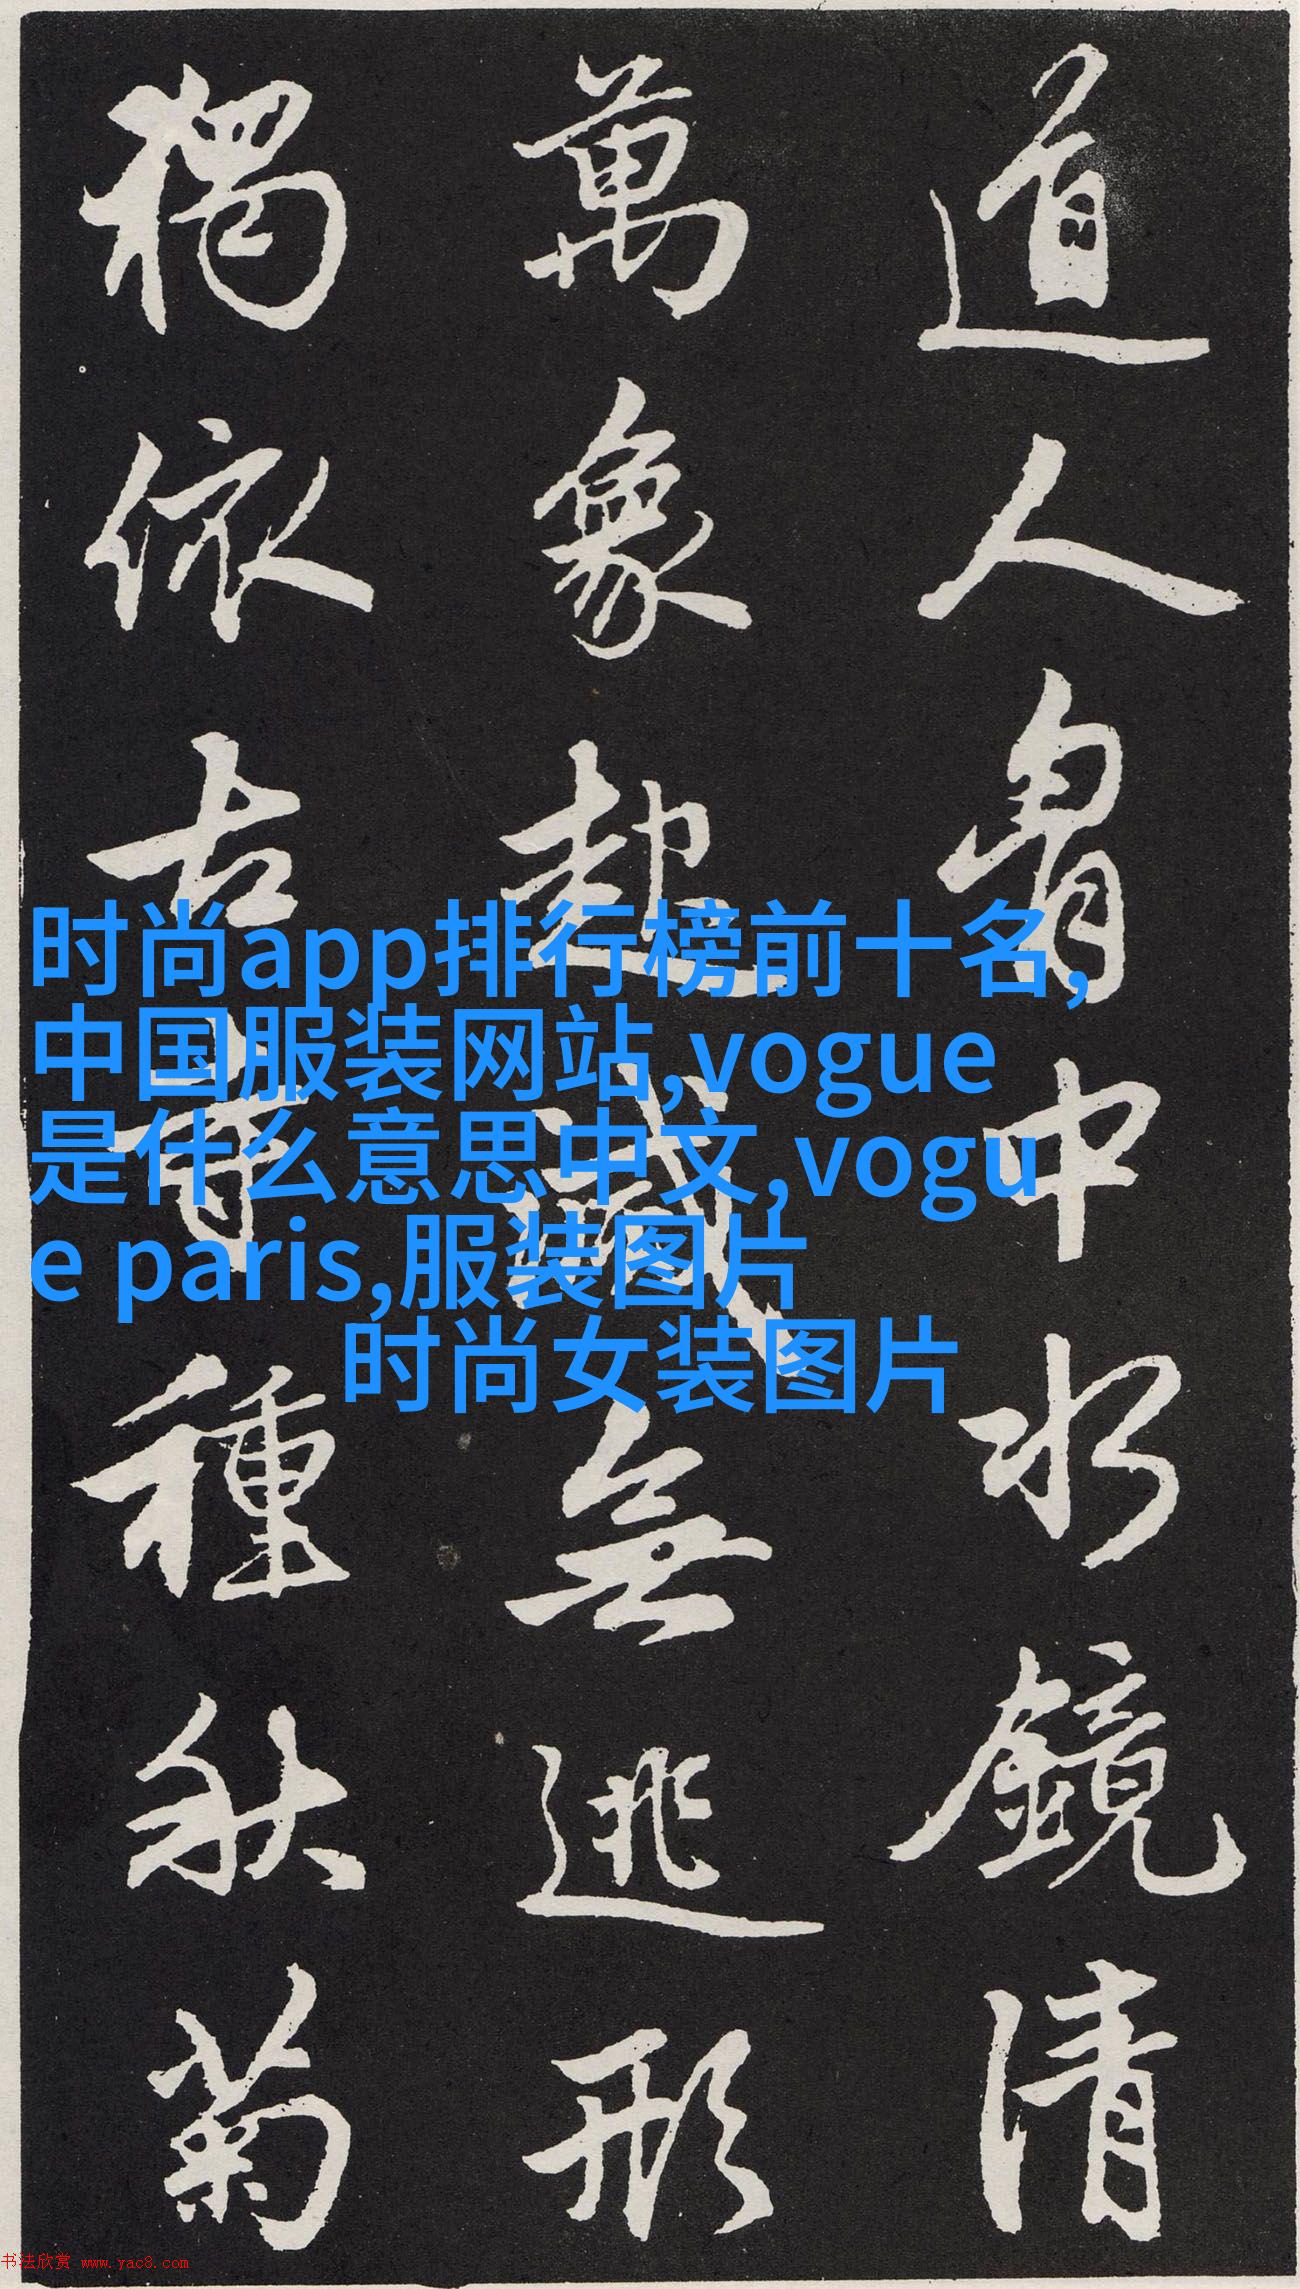 道人胷中水鏡清
萬象起滅無逃形
獨依古寺種秋菊
时尚app排行榜前十名,
中国服装网站,vogue
是什么意思中文,vogu
e paris,服装图片
时尚女装图片
书法欣赏 www.yac8.com